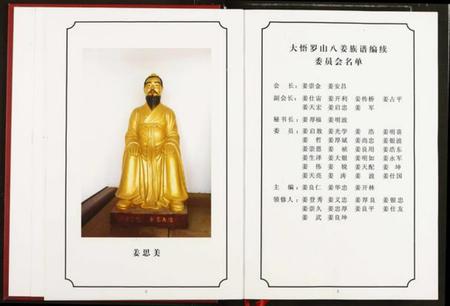 姜思美
大悟罗山八姜族谱编续
委员会名单
会　长：姜崇金　姜安昌
副会长：姜仕宙　姜开利　姜传桥　姜占平
姜天宏　姜启忠　姜　军
秘书长：姜厚楠　姜明波
委　员：姜启敢　姜光学　姜　浩　姜明喜
姜　哲　姜厚斌　姜尚忠　姜银波
姜崇恩　姜　祯　姜良用　姜浩东
姜生泽　姜大银　姜明如　姜永军
姜　伟　姜　锐　姜天配　姜　坤
姜天亮　姜　涛　姜　波　姜仕国
主　编：姜良仁　姜华忠　姜开林
领修人：姜登秀　姜义志　姜厚良　姜银忠
姜崇久　姜忠厚　姜良平　姜仕友
姜　武　姜良坤